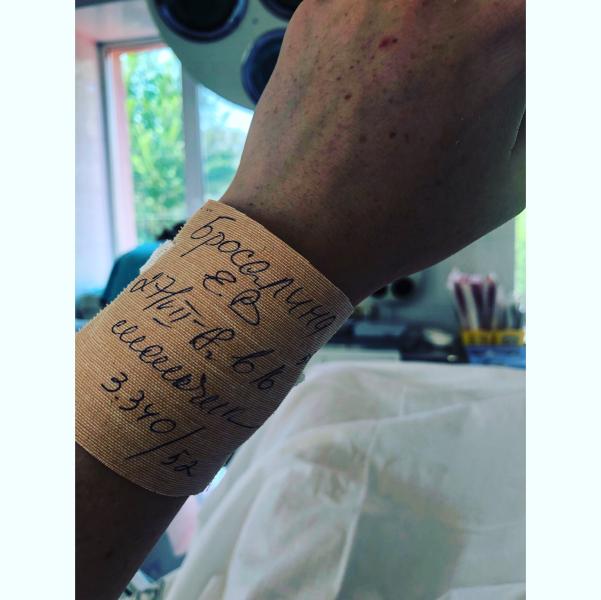 Бросалино
ЕВ
27/VII-18. 6 16
мальчик
3.340/52